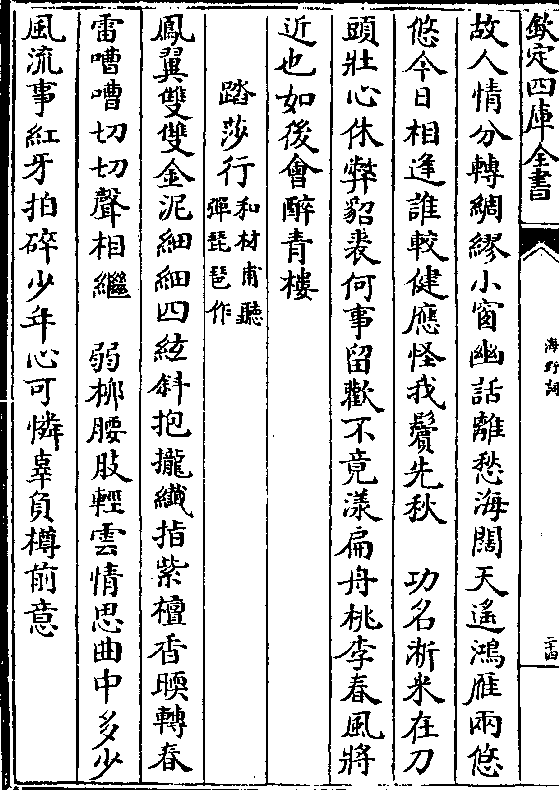 欽定四庫全書
海野詞
二十四
故人情分轉綢繆小窗幽話離愁海闊天遙鴻雁兩悠
悠今日相逢誰較健應怪我鬢先秋　功名淅米在刀
頭壯心休弊貂裘何事留歡不竟漾扁舟桃李春風將
近也如後會醉青樓
踏莎行和材甫聽彈琵琶作
鳳翼雙雙金泥細細四絃斜抱攏纖指紫檀香暖轉春
雷嘈嘈切切聲相繼　弱柳腰肢輕雲情思曲中多少
風流事紅牙拍碎少年心可憐辜負樽前意